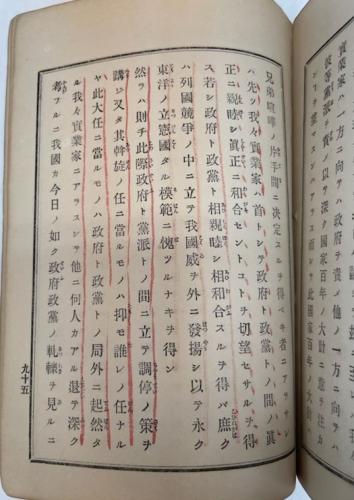 兄弟喧嘩ノ片手間ニ決定スルヲ得ベキ者ニアラサレ
ハ先ツ我々實業家ハ首トシテ政府ト政黨トノ間ノ眞
正ニ親睦シ眞正ニ和合セントコトヲ切望セサルヲ得
ス若シ政府ト政黨ト相親睦シ相和合スルヲ得バ庶ク
ハ列國競爭ノ中ニ立テ我國威ヲ外ニ發揚シ以テ永ク
東洋ノ立憲國タル模範ニ愧ツルナキヲ得ン
然ラハ則チ此際政府ト黨派トノ間ニ立テ調停ノ策ヲ
講ジ又タ其斡旋ノ任ニ當ルモノハ抑モ誰レノ任ナル
ヤ此大任ニ當ルモノハ政府ト政黨トノ局外ニ起然タ
ル我々實業家ニアラスシテ他ニ何人カアル退テ深ク
考フルニ我國カ今日ノ如ク政府政黨ノ軋轢ヲ見ルニ
九十五